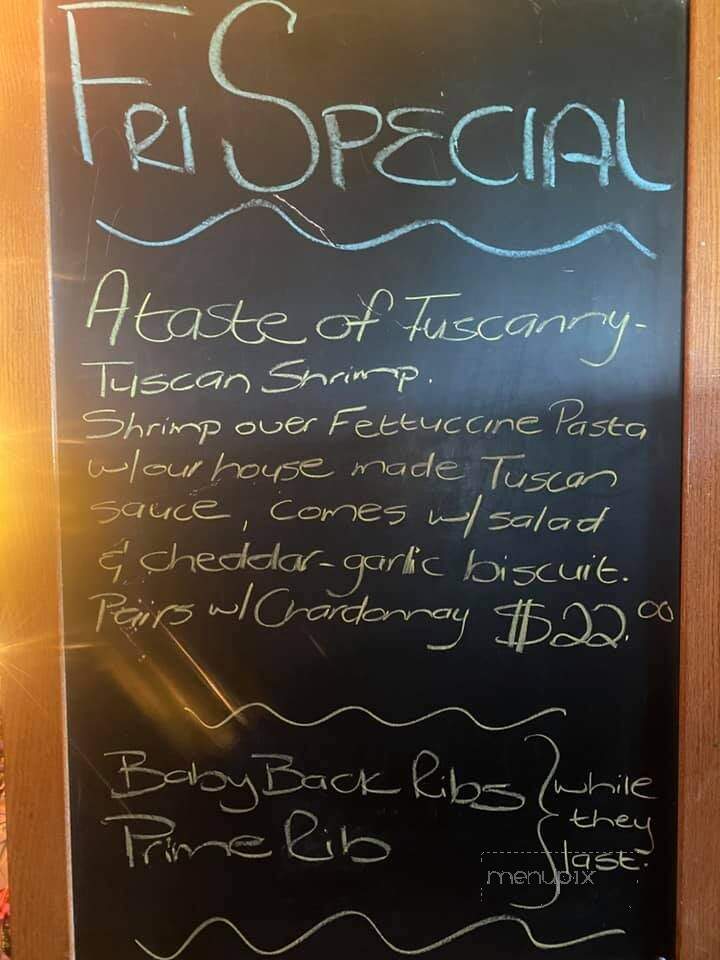 FRI SPECIAL
A taste of Tuscanny-
Tuscan Shrimp.
Shrimp over Fettuccine Pasta
w/our house made Tuscan
sauce, comes w/ salad
& cheddar-garlic biscuit.
Pairs w/ Chardonnay $22.00
Baby Back Ribs } while
they
Prime Rib
last.
menupix